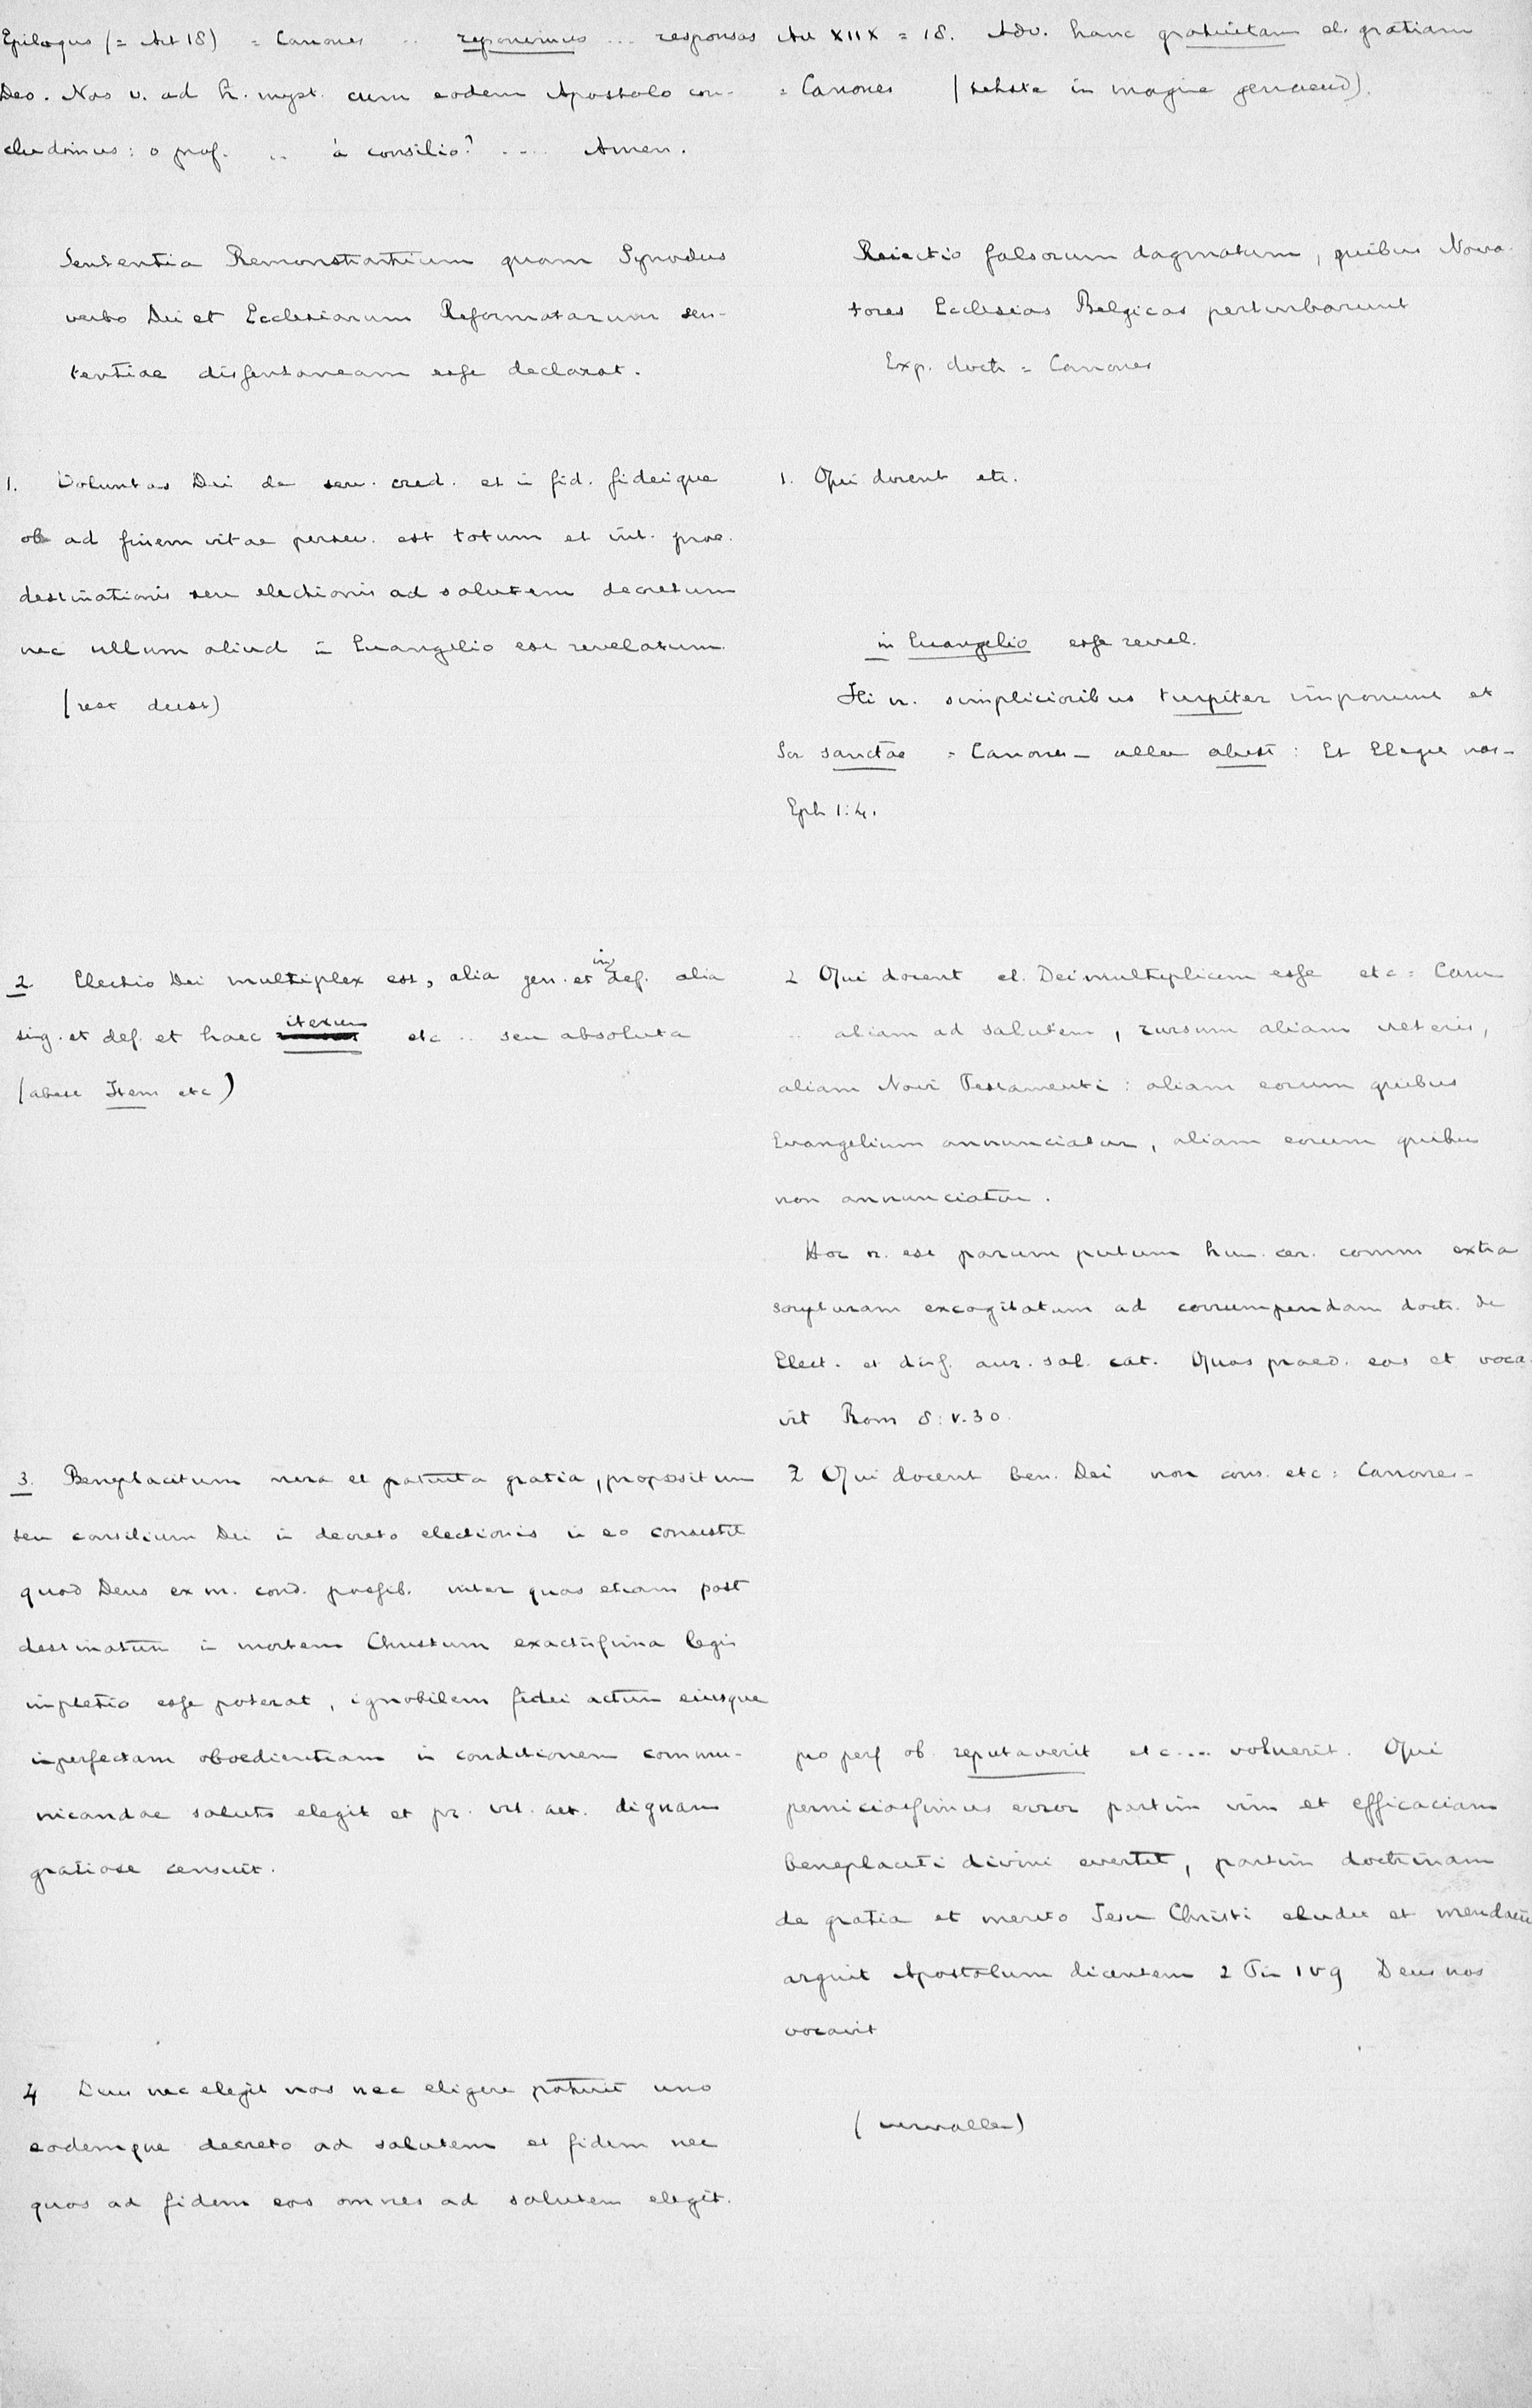 Epilogus (= Art 18) = Canones .. reponemus ... responsas
Deo. Nos v. ad h. myst. cum eodem Apostolo con-
cludimus: o prof. .. à consilio? .... Amen.
Sententia Remonstrantium quam Synodus
verbo Dei et Ecclesiarum Reformatarum sen-
tentiae dissentaneam esse declarat.
1. Voluntas Dei de serv. cred. et in fid. fideique
ob ad finem vitae persev. est totum et int. prae-
destinationis seu electionis ad salutem decretum
nec ullum aliud in Euangelio est revelatum.
(rest deest)
2. Electio Dei multiplex est, alia gen. et indef. alia
sing. et def. et haec iterum etc .. seu absoluta
(abest Item etc)
3. Beneplacitum mera et gratuita gratia, propositum
seu consilium Dei in decreto electionis in eo consistit
quod Deus ex m. cond. possib. inter quas etiam post
destinatum in mortem Christum exactissima legis
impletio esse poterat, ignobilem fidei actum eiusque
imperfectam oboedientiam in conditionem commu-
nicandae salutis elegit et pr. vit. aet. dignam
gratiose censuit.
4 Deus nec elegit nos nec eligere potuit uno
eodemque decreto ad salutem et fidem nec
quos ad fidem eos omnes ad salutem elegit.
Art XIIX = 18. Adv. hanc gratuitam el. gratiam
= Canones (in magine
Reiectio falsorum dogmatum, quibus Nova-
tores Ecclesias Belgicas perturbarunt
Exp. doctr = Canones
1. Qui docent etc.
in Euangelio esse revel.
Hi n. simplicioribus turpiter imponunt et
Scr sanctae = Canones - allen abest: Et Elegit nos -
Eph 1:4.
2 Qui docent el. Dei multiplicem esse etc = Can
.. aliam ad salutem, rursum aliam veteris,
aliam Novi Testamenti: aliam eorum quibus
Evangelium annunciatur, aliam eorum quibus
non annunciatur.
Hoc n. est purum putum hum. cer. comm extra
scripturam excogitatum ad corrumpendam doctr. de
Elect. et diss. aur. sal. cat. Quos praed. eos et voca-
vit Rom 8: v. 30.
3 Qui docent ben. Dei non cons. etc = Canones -
pro perf ob. reputaverit etc .... voluerit. Qui
perniciosissimus error partim vim et efficaciam
beneplaciti divini evertit, partim doctrinam
de gratia et merito Jesu Christi eludit et mendacii
arguit Apostolum dicentem 2 Tim 1 v 9 Deus nos
vocavit
(vervallen)